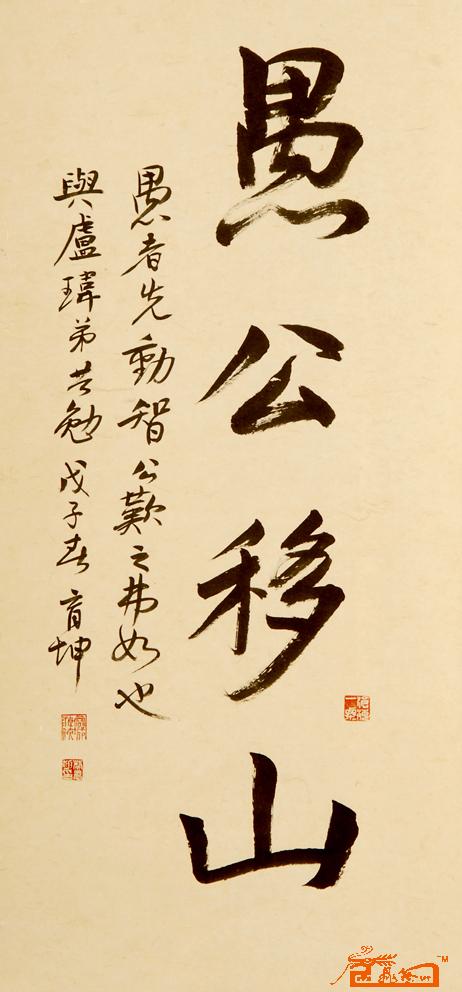 愚公移山
愚者先動智公歎之弗如也
與盧瑋弟共勉戊子春育坤